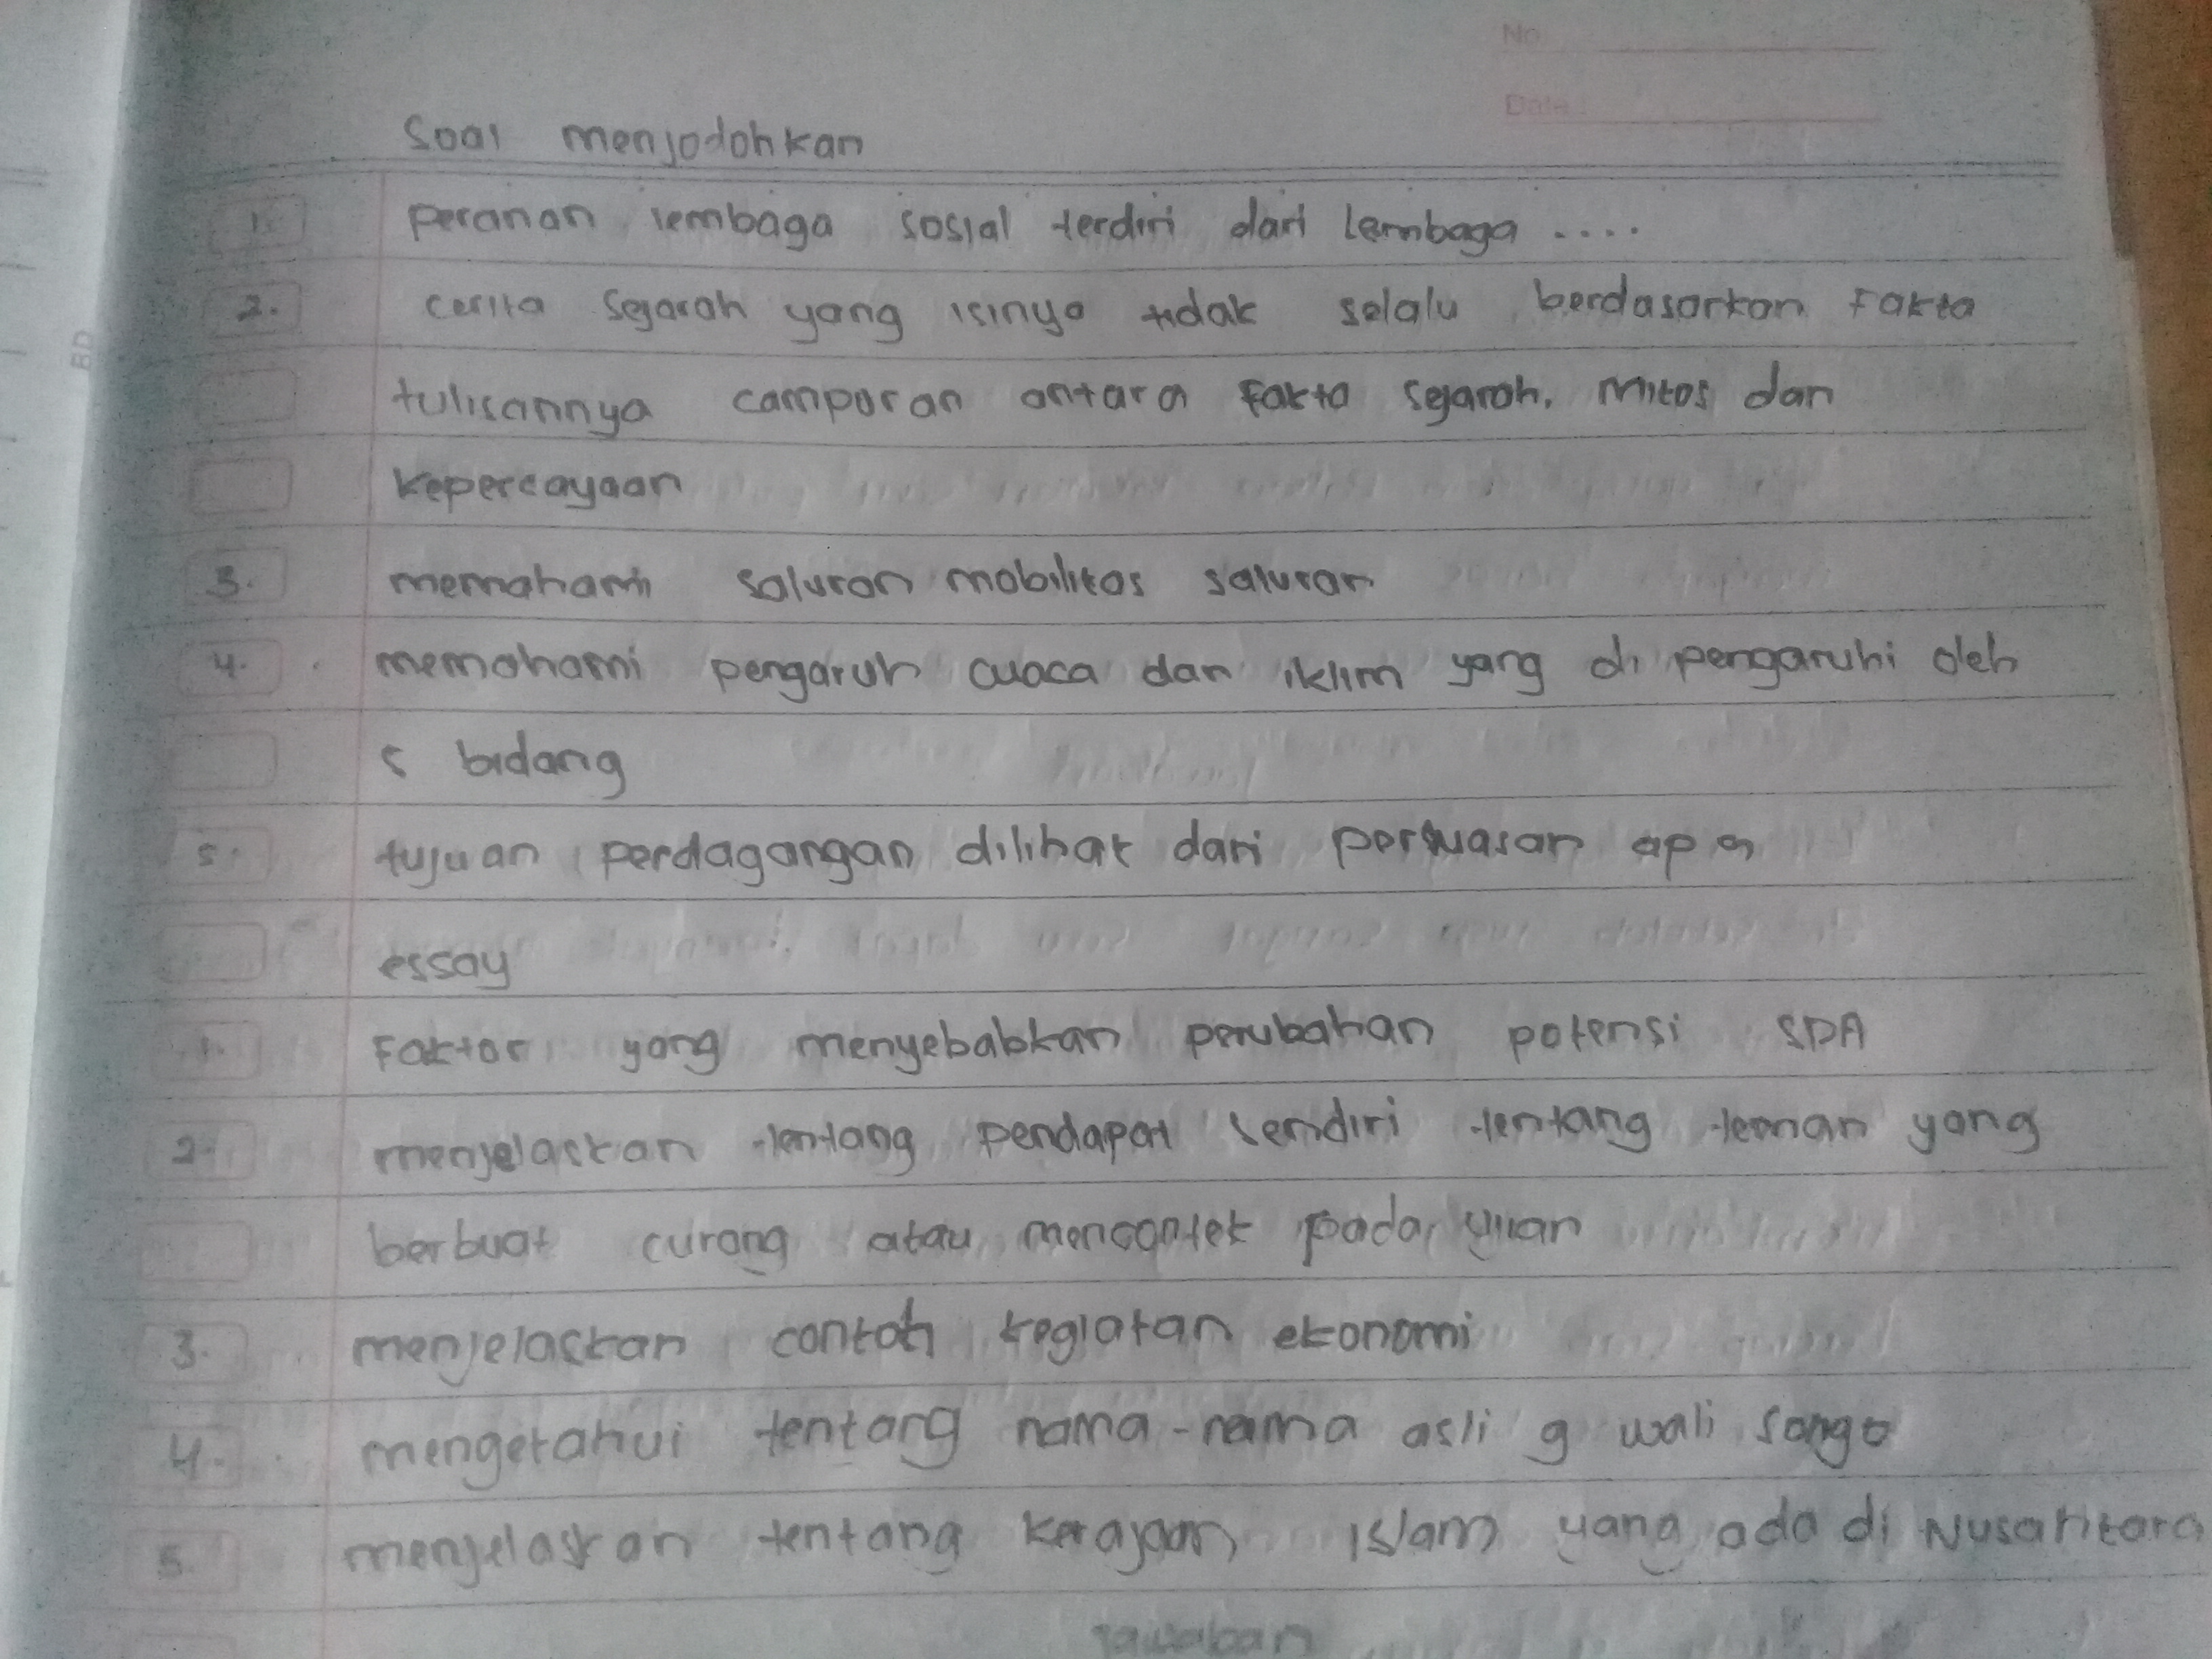 BD
No
Date
Soal menjodohkan
1. peranan lembaga sosial terdiri dari lembaga....
2. cerita segarah yang isinya tidak selalu berdasarkan fakta
tulisannya campuran antara fakta segarah, mitos dan
kepercayaan
3. memahami saluran mobilitas saluran
4. memahami pengaruh cuaca dan iklim yang di pengaruhi oleh
5 bidang
5. tujuan perdagangan dilihat dari perluasan apa
essay
1. Faktor yang menyebabkan perubahan potensi SDA
2. menjelaskan tentang pendapat sendiri tentang teman yang
berbuat curang atau mencontek pada ujian
3. menjelaskan contoh kegiatan ekonomi
4. mengetahui tentang nama-nama asli 9 wali songo
5. menjelaskan tentang kerajaan Islam yang ada di Nusantara